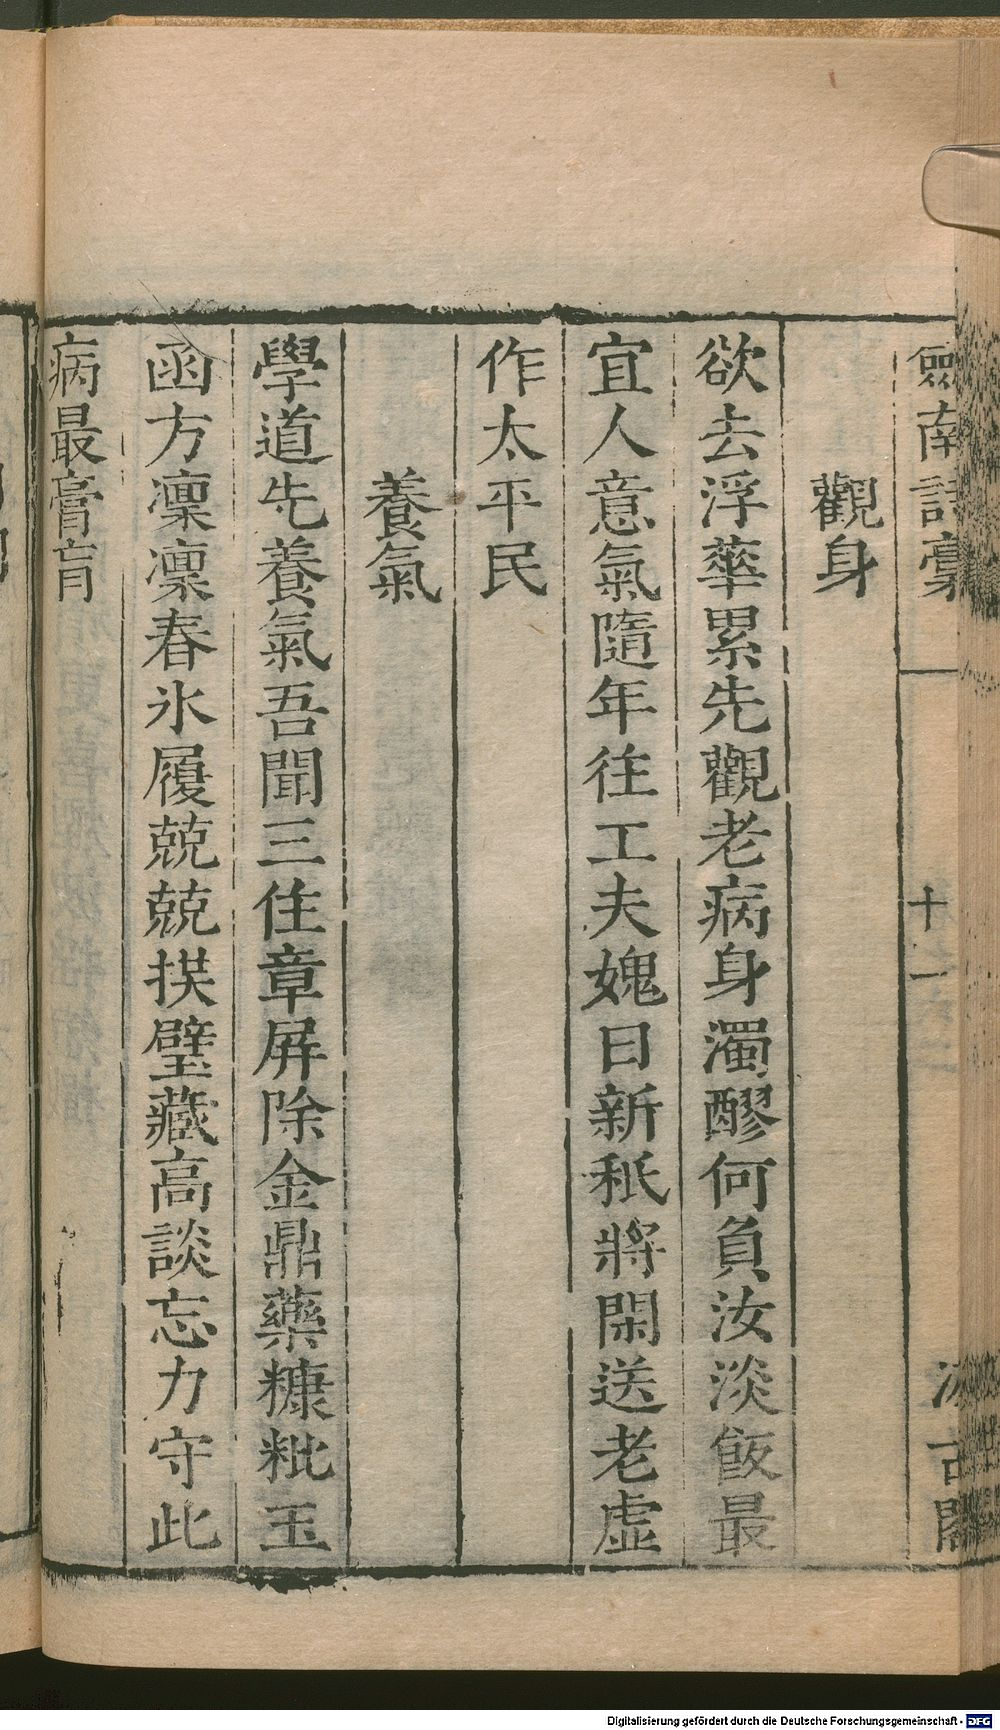 劍南詩稾
十一
汲古閣
觀身
欲去浮華累先觀老病身濁醪何負汝淡飯最
宜人意氣隨年往工夫媿日新秖將閑送老虛
作太平民
養氣
學道先養氣吾聞三住章屏除金鼎藥糠粃玉
函方凜凜春氷履兢兢拱璧藏高談忘力守此
病最膏肓
Digitalisierung gefördert durch die Deutsche Forschungsgemeinschaft - DFG